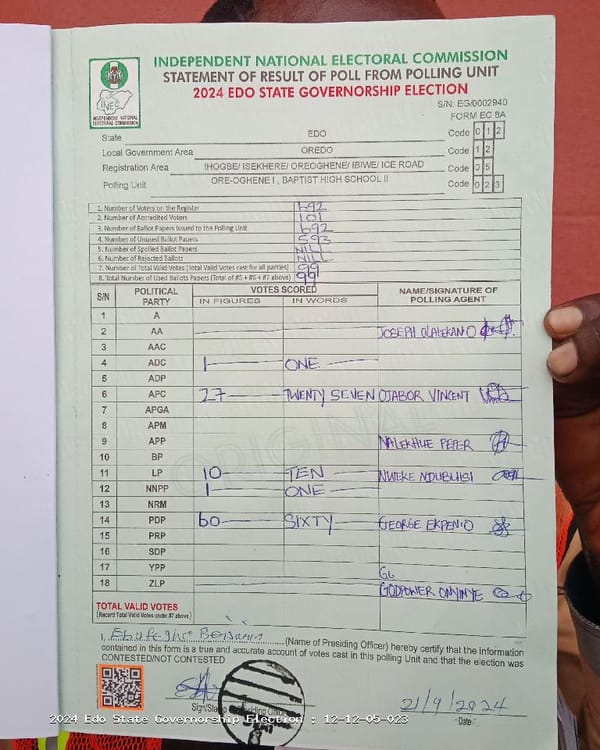 INDEPENDENT NATIONAL ELECTORAL COMMISSION
STATEMENT OF RESULT OF POLL FROM POLLING UNIT
2024 EDO STATE GOVERNORSHIP ELECTION
S/N: EG/0002940
FORM EC 8A
INEC
INDEPENDENT NATIONAL ELECTORAL COMMISSION
State EDO Code 0 1 2
Local Government Area OREDO Code 1 2
Registration Area IHOGBE/ ISEKHERE/ OREOGHENE/ IBIWE/ ICE ROAD Code 0 5
Polling Unit ORE-OGHENE I , BAPTIST HIGH SCHOOL II Code 0 2 3
1. Number of Voters on the Register 692
2. Number of Accredited Voters 101
3. Number of Ballot Papers Issued to the Polling Unit 692
4. Number of Unused Ballot Papers 593
5. Number of Spoiled Ballot Papers NILL
6. Number of Rejected Ballots NILL
7. Number of Total Valid Votes (Total Valid Votes cast for all parties) 99
8. Total Number of Used Ballots Papers (Total of #5 + #6 + #7 above) 99
S/N POLITICAL PARTY VOTES SCORED NAME/SIGNATURE OF POLLING AGENT
IN FIGURES IN WORDS
1 A
2 AA JOSEPH
3 AAC
4 ADC 1 ONE
5 ADP
6 APC 27 TWENTY SEVEN OJABOR VINCENT
7 APGA
8 APM
9 APP
10 BP
11 LP 10 TEN NWEKE NDUBUISI
12 NNPP 1 ONE
13 NRM
14 PDP 60 SIXTY GEORGE
15 PRP
16 SDP
17 YPP GG
18 ZLP GODPOWER
TOTAL VALID VOTES
(Record Total Valid Votes under #7 above)
I, (Name of Presiding Officer) hereby certify that the information
contained in this form is a true and accurate account of votes cast in this polling Unit and that the election was
CONTESTED/NOT CONTESTED
21/9/2024
Sign/Stamp
Date
2024 Edo State Governorship Election : 12-12-05-023